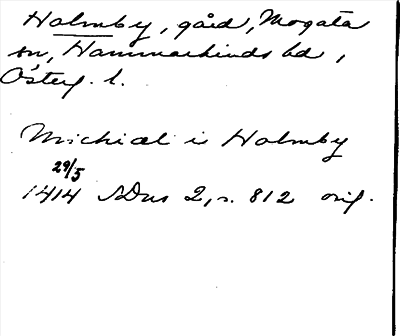 Holmby, gård, Mogata
sn, Hammarkinds hd,
Österg. l.
Michial i Holmby
29/5
1414 SDns 2, s. 812 orig.